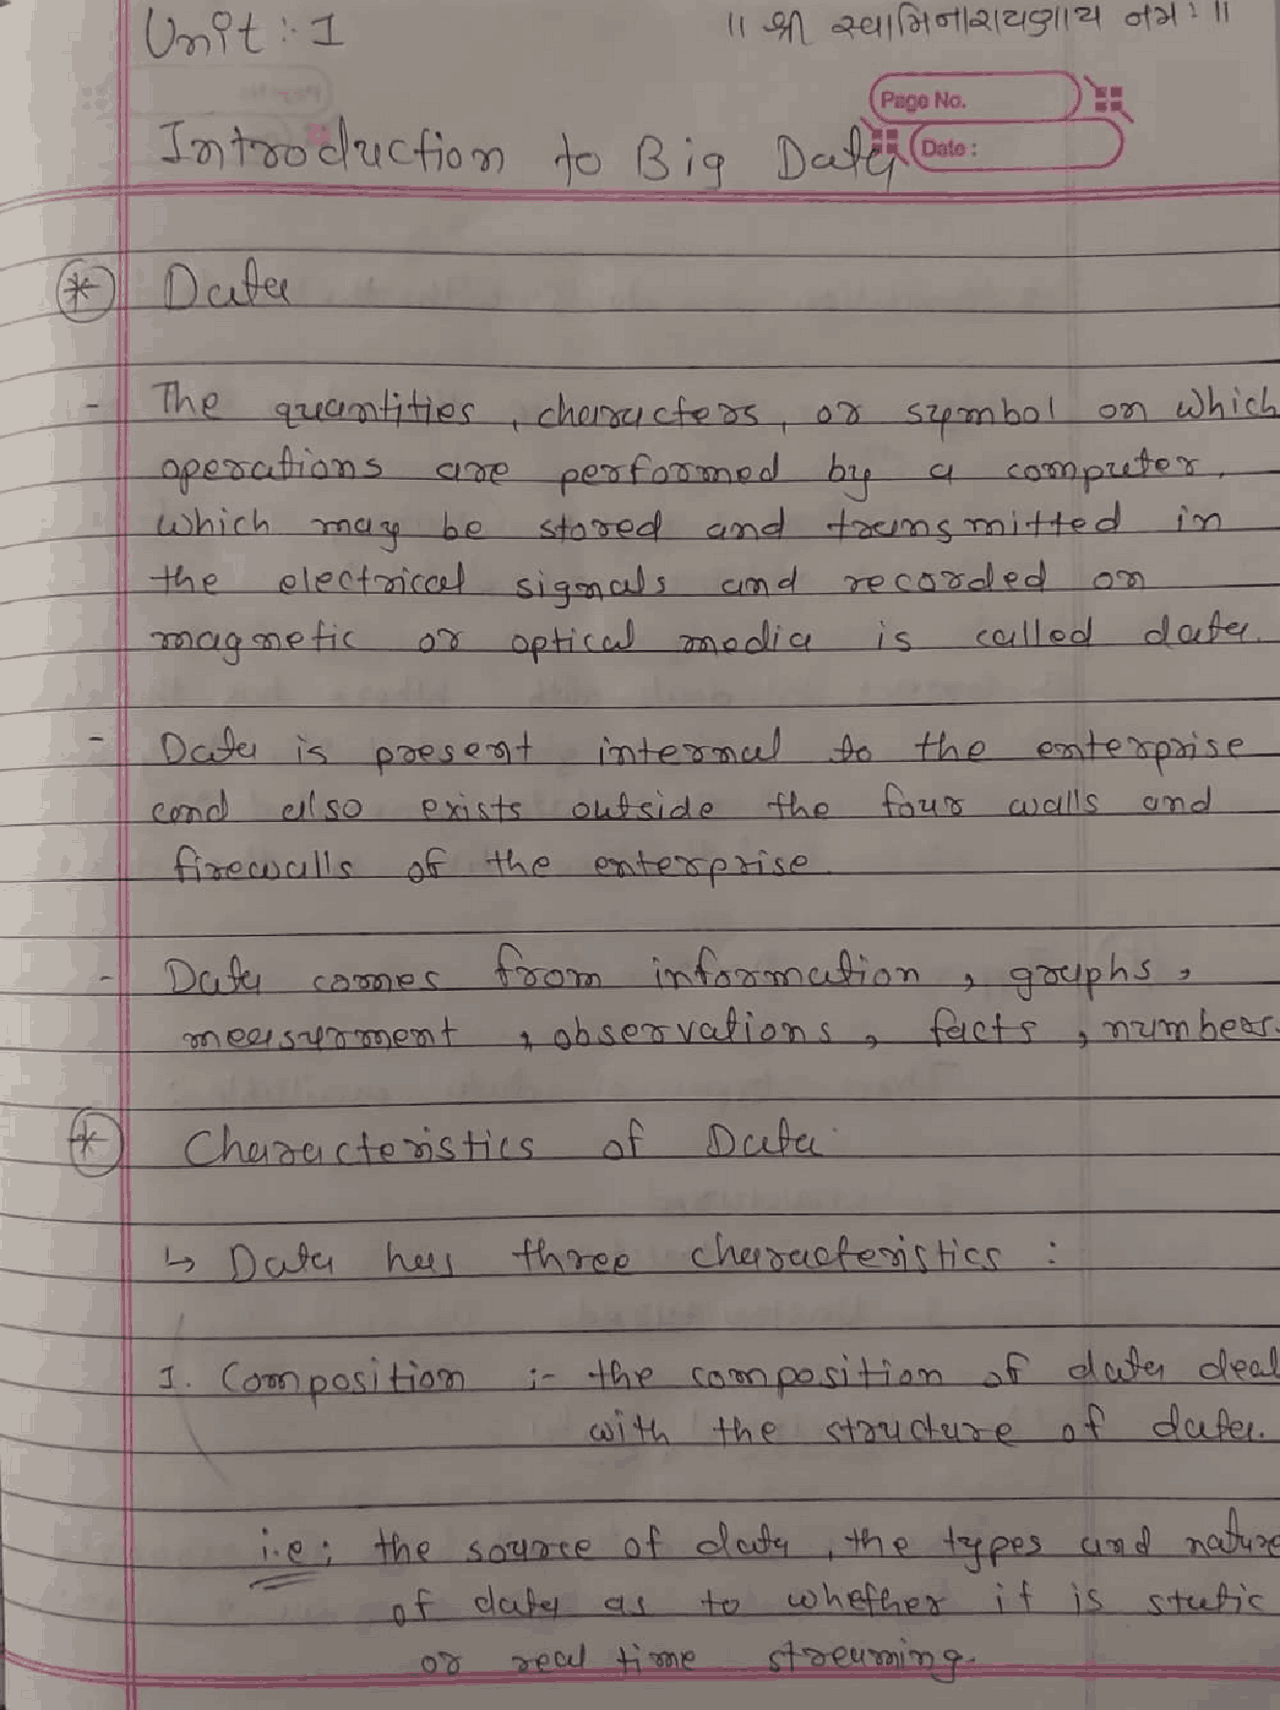 Unit :- 1
॥ श्री स्वामिनारायणाय नमः ॥
Page No.
Date :
Introduction to Big Data
* Data
- The quantities, characters, or symbol on which
operations are performed by a computer,
which may be stored and transmitted in
the electrical signals and recorded on
magnetic or optical media is called data.
- Data is present internal to the enterprise
and also exists outside the four walls and
firewalls of the enterprise.
- Data comes from information, graphs,
measurment, observations, facts, number.
* Characteristics of Data
↳ Data has three characteristics :
1. Composition :- the composition of data deal
with the structure of data.
i.e; the source of data, the types and nature
of data as to whether it is static
or real time streaming.